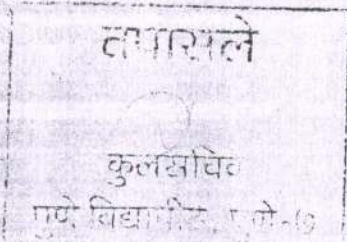 तपासले
कुलसचिव
पुणे विद्यापीठ, पुणे-७